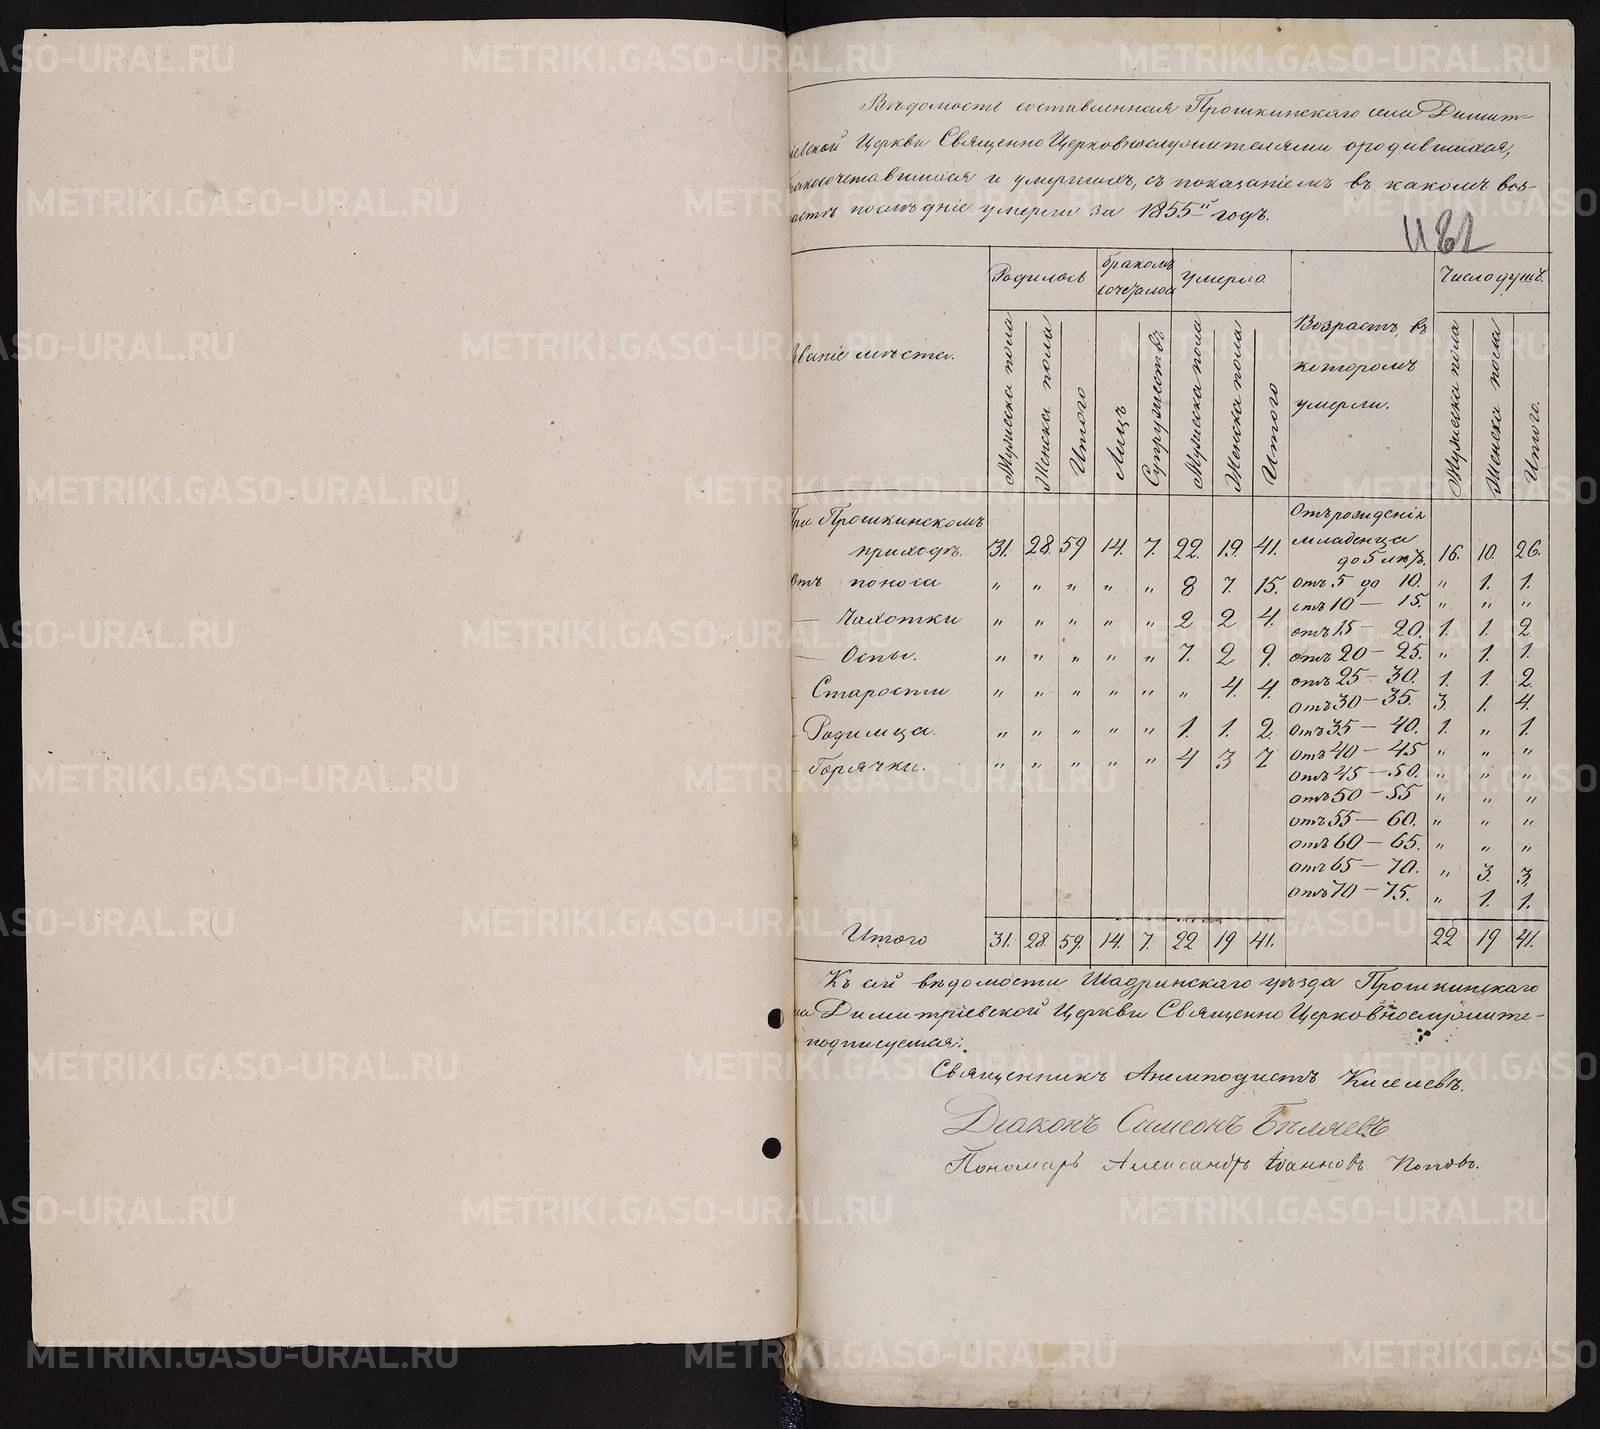 Вѣдомость составленная Прошкинскаго села Димит=
іевской Церкви Священно Церковнослужителями ородившихся,
бракосочетавшихся и умершихъ, съ показаніемъ въ какомъ воз-
растѣ послѣдніе умерли за 1855й годъ.
Родилось
бракомъ сочеталось
умерло.
Число душъ.
званіе мѣста.
Мужеска пола
Женска пола
Итого
Лицъ
Супружествъ
Мужеска пола
Женска пола
Итого
Возрастъ, въ
которомъ
умерли.
Мужеска пола
Женска пола
Итого.
При Прошкинскомъ
приходѣ. 31. 28. 59 14. 7. 22. 19. 41.
Отъ поноса " " " " " 8 7. 15.
— Чахотки " " " " " 2 2 4.
— Оспы. " " " " " 7. 2 9.
Старости " " " " " " 4. 4.
Родимца. " " " " " 1. 1. 2.
Горячки. " " " " " 4 3 7
Отъ рожденія
младенца
до 5 лѣтъ. 16. 10. 26.
отъ 5 до 10. " 1. 1.
отъ 10 — 15. " " "
отъ 15 — 20. 1. 1. 2
отъ 20 — 25. " 1. 1.
отъ 25 — 30. 1. 1. 2.
отъ 30 — 35. 3. 1. 4.
отъ 35 — 40. 1. " 1.
отъ 40 — 45 " " "
отъ 45 — 50. " " "
отъ 50 — 55 " " "
отъ 55 — 60. " " "
отъ 60 — 65. " " "
отъ 65 — 70. " 3. 3.
отъ 70 — 75. " 1. 1.
Итого 31. 28. 59. 14. 7. 22 19 41. 22 19 41.
Къ сей вѣдомости Шадринскаго уѣзда Прошкинскаго
ла Димитріевской Церкви Священно Церковнослужите-
подписуемся:
Священникъ Анемподистъ Киселевъ.
Діаконъ Симеонъ Бѣляевъ
Пономарь Александръ Іоанновъ Поповъ.
METRIKI.GASO-URAL.RU